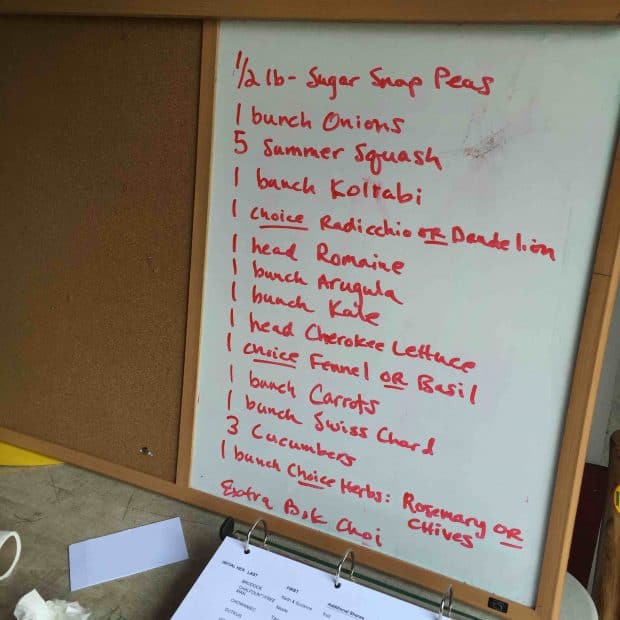 1/2 lb - Sugar Snap Peas
1 bunch Onions
5 Summer Squash
1 bunch Kolrabi
1 choice Radicchio OR Dandelion
1 head Romaine
1 bunch Arugula
1 bunch Kale
1 head Cherokee Lettuce
1 choice Fennel OR Basil
1 bunch Carrots
1 bunch Swiss Chard
3 Cucumbers
1 bunch Choice Herbs: Rosemary OR
CHives
Extra Bok Choi
LAST FIRST Additional Shares